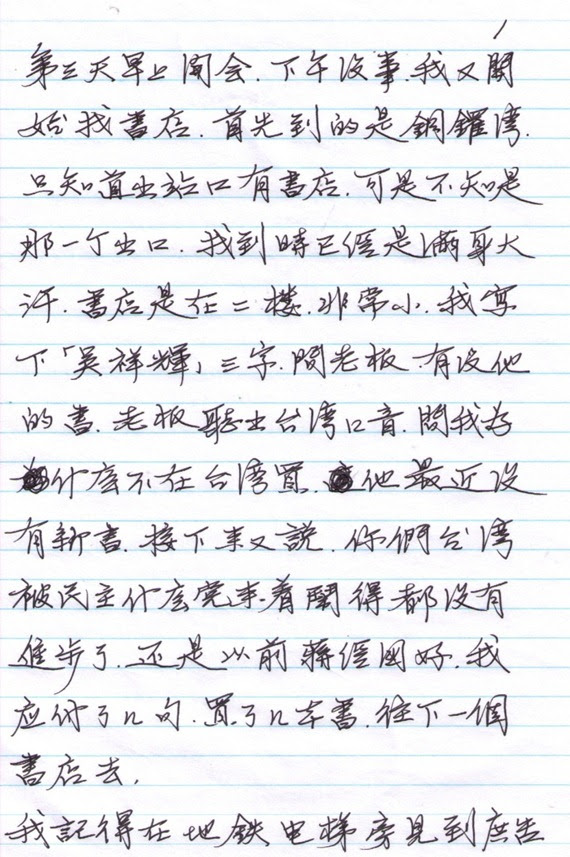 1
第三天早上開会.下午没事.我又開
始找書店.首先到的是銅鑼湾.
只知道出站口有書店.可是不知是
那一个出口.找到時已經是滿身大
汗.書店是在二楼.非常小.我寫
下「吴祥輝」三字.問老板.有没他
的書.老板聽出台湾口音.問我為
什底不在台湾買.他最近没
有新書.接下来又說.你們台湾
被民主什底党来着鬧得都没有
進步了.还是以前蔣經國好.我
应付了几句.買了几本書.往下一個
書店去.
我記得在地鉄电梯旁見到廣告